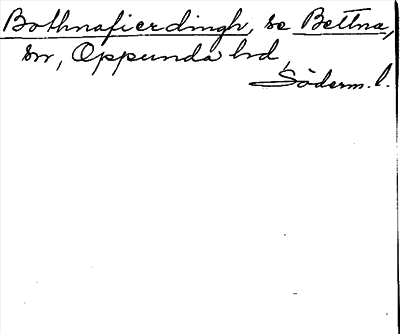 Bothnafierdingh, se Bettna,
sn, Oppunda hd,
Söderm. l.